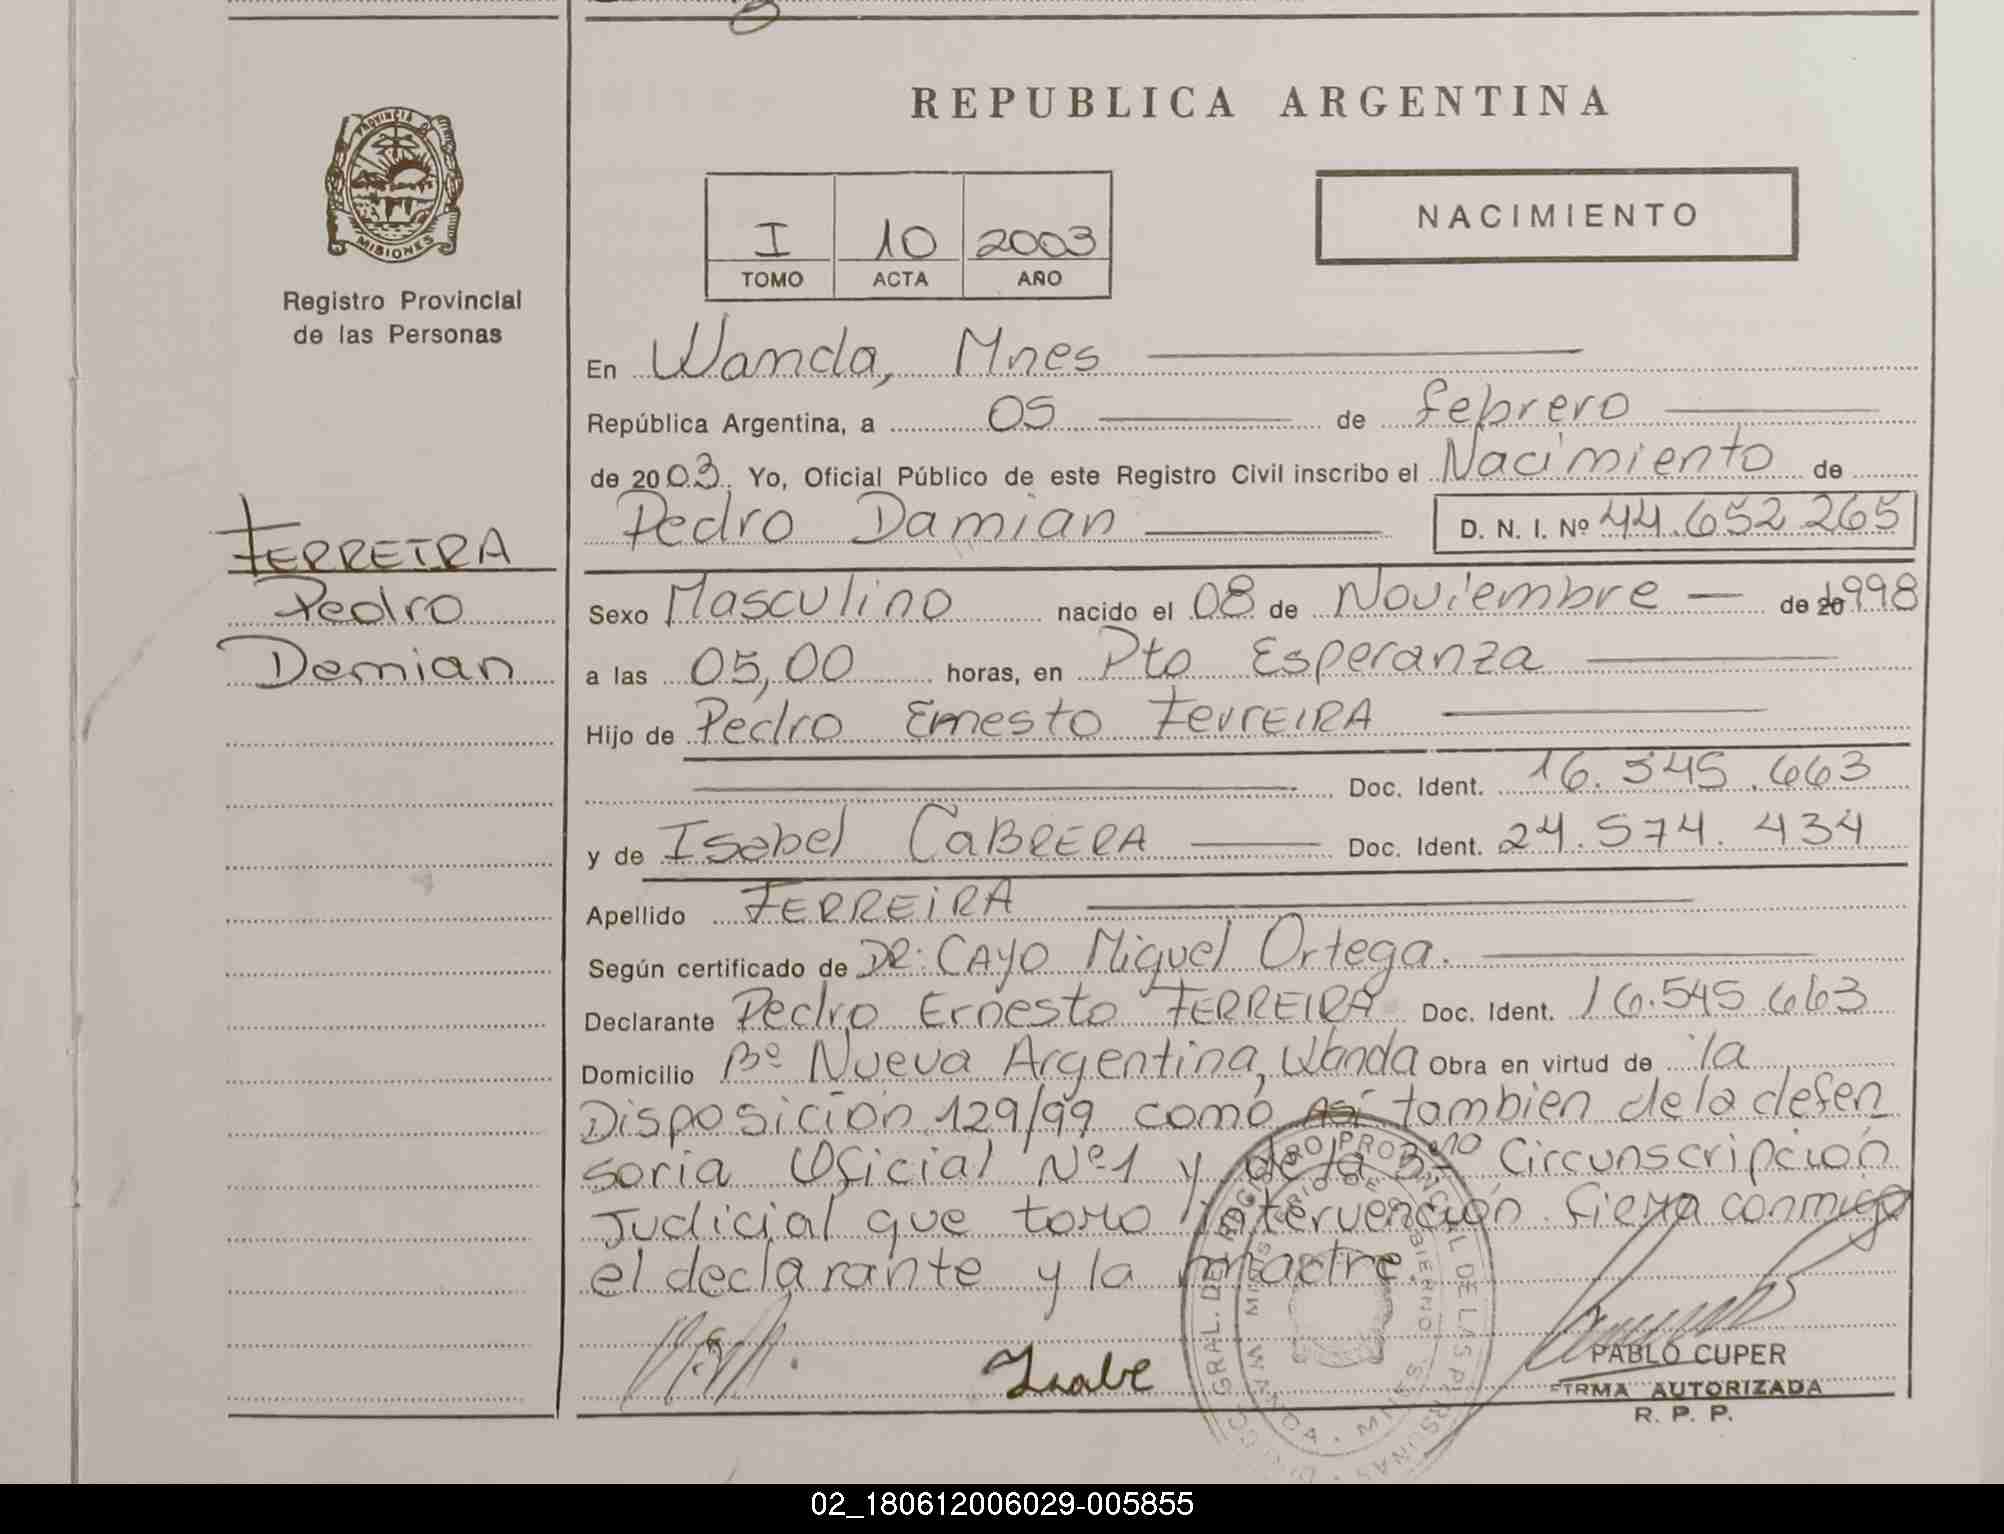 PROVINCIA DE
MISIONES
Registro Provincial
de las Personas
FERREIRA
Pedro
Demian
REPUBLICA ARGENTINA
I 10 2003
TOMO ACTA AÑO
NACIMIENTO
En Wanda, Mnes
República Argentina, a 05 de febrero
de 2003. Yo, Oficial Público de este Registro Civil inscribo el Nacimiento de
Pedro Damian D. N. I. Nº 44.652.265
Sexo Masculino nacido el 08 de Noviembre de 1998
a las 05,00 horas, en Pto Esperanza
Hijo de Pedro Ernesto FerreIRA
Doc. Ident. 16.545.663
y de Isabel CaBRERA Doc. Ident. 24.574.434
Apellido FERREiRA
Según certificado de DR: CAYO Miguel Ortega.
Declarante Pedro Ernesto FERREIRA Doc. Ident. 16.545.663
Domicilio Bº Nueva Argentina, Wanda Obra en virtud de la
Disposición 129/99 como así tambien de la defen
soria Oficial Nº1 y de la 3º Circunscripción
Judicial que tomo intervención. Firma conmigo
el declarante y la madre.
Isabe
GRAL. DEL REGISTRO PROVINCIAL DE LAS PERSONAS
MINISTERIO DE GOBIERNO
WANDA - MNES
PABLO CUPER
FIRMA AUTORIZADA
R. P. P.
02_180612006029-005855